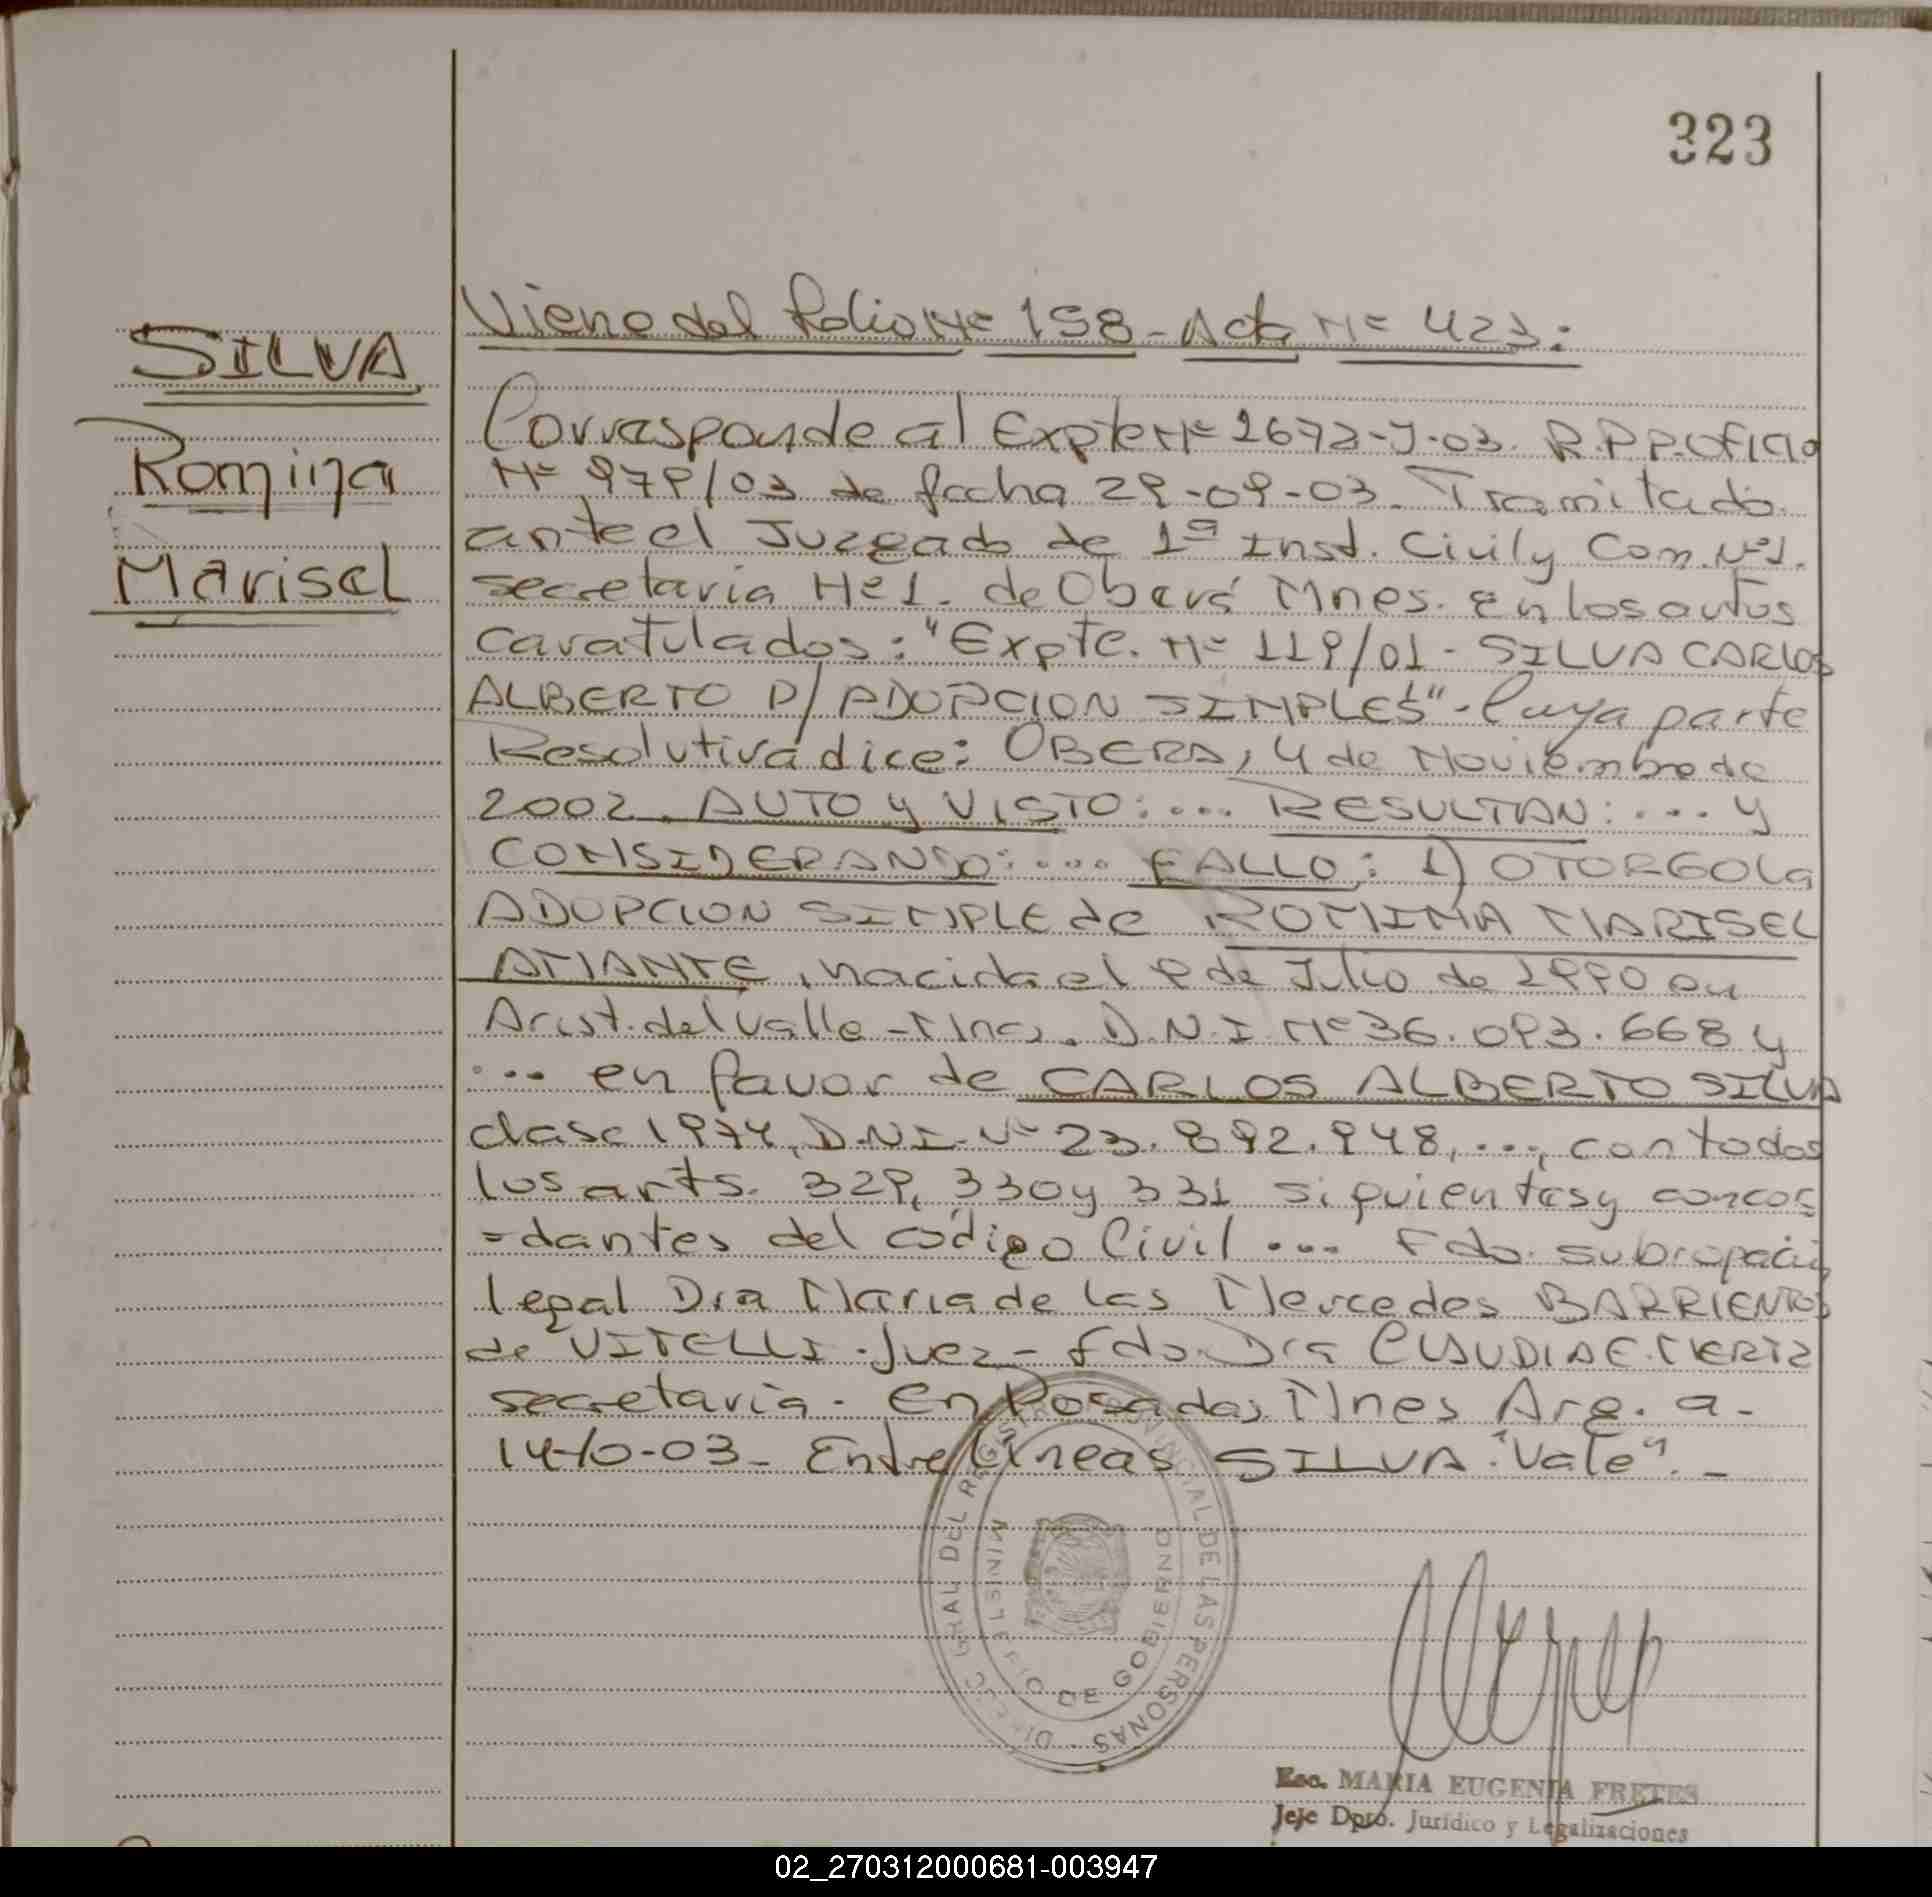 323
SILVA
Romina
Marisel
Viene del Folio Nº 158 - Acta Nº 423:
Corresponde al Expte Nº 2673-J-03. R.P.P. Oficio
Nº 979/03 de fecha 29-09-03. Tramitado
ante el Juzgado de 1ª Inst. Civil y Com. Nº1.
secretaria Nº1. de Oberá Mnes. en los autos
caratulados: "Expte. Nº 119/01 - SILVA CARLOS
ALBERTO P/ ADOPCION SIMPLES" - Cuya parte
Resolutiva dice: OBERA, 4 de Noviembre de
2002. AUTO y VISTO: ... RESULTAN: ... y
CONSIDERANDO: ... FALLO: 1) OTORGO la
ADOPCION SIMPLE de ROMINA MARISEL
AMANTE, nacida el 9 de Julio de 1990 en
Arist. del Valle - Mnes. D.N.I Nº 36.093.668 y
... en favor de CARLOS ALBERTO SILVA
clase 1974, D.N.I. Nº 23.892.948, ..., con todos
los arts. 329, 330 y 331 siguientes y concor
=dantes del código Civil ... Fdo. subrogación
legal Dra Maria de las Mercedes BARRIENTOS
de VITELLI. Juez - Fdo. Dra CLAUDIA E.
secretaria. En Posadas, Mnes Arg. a -
14-10-03 - Entre líneas SILVA "Vale". -
DIRECC. GRAL DEL REGISTRO PROVINCIAL DE LAS PERSONAS
MINISTERIO DE GOBIERNO
Esc. MARIA EUGENIA FRETES
Jefe Dpto. Jurídico y Legalizaciones
02_270312000681-003947